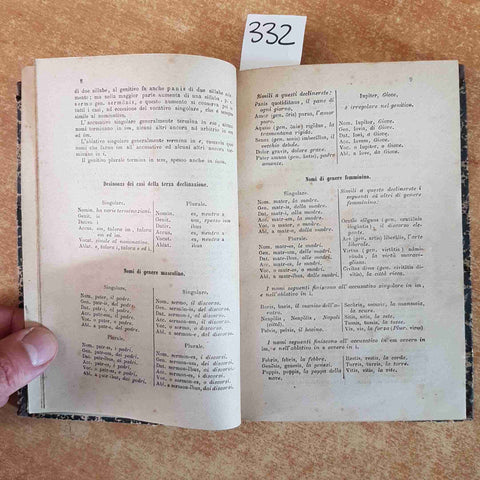 332
8
di due sillabe, al genitivo fa anche panis di due sillabe sola-
mente; ma nella maggior parte aumenta di una sillaba, p. e.
sermo gen. sermonis, e questo aumento si conserva poi in
tutti i casi, ad eccezione del vocativo singolare, che è
simile al nominativo.
L'accusativo singolare generalmente termina in em, alcuni
nomi terminano in im, ed altri ancora ad arbitrio in em
ed im.
L'ablativo singolare generalmente termina in e,
Il genitivo plurale termina in um, spesso anche in ium.
Desinenze dei casi della terza declinazione.
Singolare.
Nomin. ha varie terminazioni.
Genit. is
Dativo. i
Accus. em, talora im, talora
en ed im.
Vocat. simile al nominativo.
Abl. e, talora i, talora e ed i.
Plurale.
Nomin. es, i neutri a
Genit.
Dat. ibus
Accus. es, i neutri a
Vocat. es, i neutri a
Ablat. ibus
Nomi di genere masculino.
Singolare.
Nom. pater, il padre.
Gen. patr-is, del padre.
Dat.
Acc.
Voc.
Abl. a patr-e, dal padre.
Plurale.
Nom. patr-es, i padri.
Gen. patr-um, dei padri.
Dat.
Acc.
Voc.
Abl. a patr-ibus, dai padri.
Singolare.
Nom. sermo, il discorso.
Gen. sermon-is, del discorso.
Dat. sermon-i, al discorso.
Acc. sermon-em, il discorso.
Voc. o sermo, o discorso.
Abl. a sermon-e, dal discorso.
Plurale.
Nom. sermon-es, i discorsi.
Gen. sermon-um, dei discorsi.
Dat. sermon-ibus, ai discorsi.
Acc. sermon-es, i discorsi.
Voc. o sermon-es, o discorsi.
Abl. a sermon-ibus, dai discorsi.
9
Simili a questi declinerete:
Panis quotidianus, il pane di
ogni giorno.
Amor (gen. òris) purus, l'amor
puro.
Aquilo (gen. ònis) rigidus, la
tramontana rigida.
Senex (gen. senis) imbecillus, il
vecchio debole.
Dolor gravis, dolore grave.
Pater amans (gen. antis), padre
amante.
Iupiter, Giove,
è irregolare nel genitivo.
Nom. Iupiter, Giove.
Gen. Iovis, di Giove.
Dat. Iovi, a Giove.
Acc. Iovem, Giove.
Voc. o Iupiter, o Giove.
Abl. a Iove, da Giove.
Nomi di genere femminino.
Singolare.
Nom. mater, la madre.
Gen. matr-is, della madre.
Dat. matr-i, alla madre.
Acc. matr-em, la madre.
Voc. o mater, o madre.
Abl. a matr-e, dalla madre.
Plurale.
Nom. matr-es, le madri.
Gen. matr-um, delle madri.
Dat. matr-ibus, alle madri.
Acc. matr-es, le madri.
Voc. o matr-es, o madri.
Abl. a matr-ibus, dalle madri.
Simili a queste declinerete i
seguenti:
Oratio elegans (gen. orationis
elegantis), il discorso ele-
gante.
Ars (gen. artis) liberalis, l'arte
liberale.
Virtus (gen. virtutis) admi-
rabilis, la virtù maravi-
gliosa.
Civitas dives (gen. civitatis di-
vitis), la città ricca.
I nomi seguenti finiscono all'accusativo singolare in im,
e nell'ablativo in i.
Buris, buris, il manico dell'a-
ratro.
Neapolis, Neapolis, Napoli
(città).
Pelvis, pelvis, il bacino.
Securis, securis, la mannaia,
la scure.
Sitis, sitis, la sete.
Tussis, tussis, la tosse.
Vis, vis, la forza (Plur. vires)
I nomi seguenti finiscono all'accusativo in em ovvero in
im, e nell'ablativo in e ovvero in i.
Febris, febris, la febbre.
Puppis, puppis, la poppa della
nave.
Restis, restis, la corda.
Turris, turris, la torre.
Vitis, vitis, la vite.